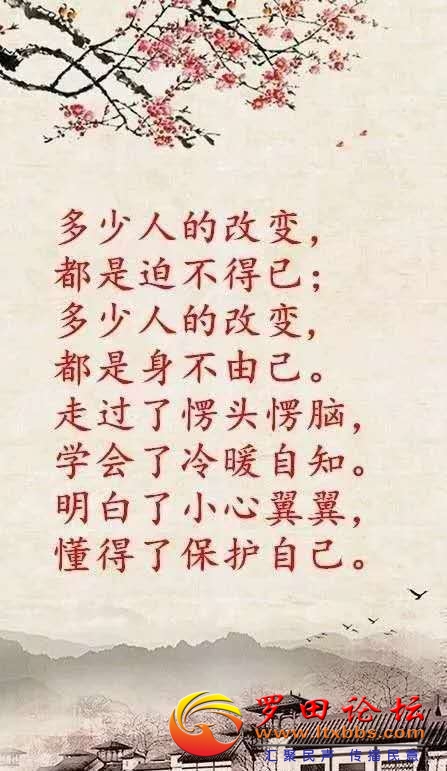 多少人的改变，
都是迫不得已；
多少人的改变，
都是身不由己。
走过了愣头愣脑，
学会了冷暖自知。
明白了小心翼翼，
懂得了保护自己。
罗田论坛
www.ltxbbs.com
汇聚民声 传播民意